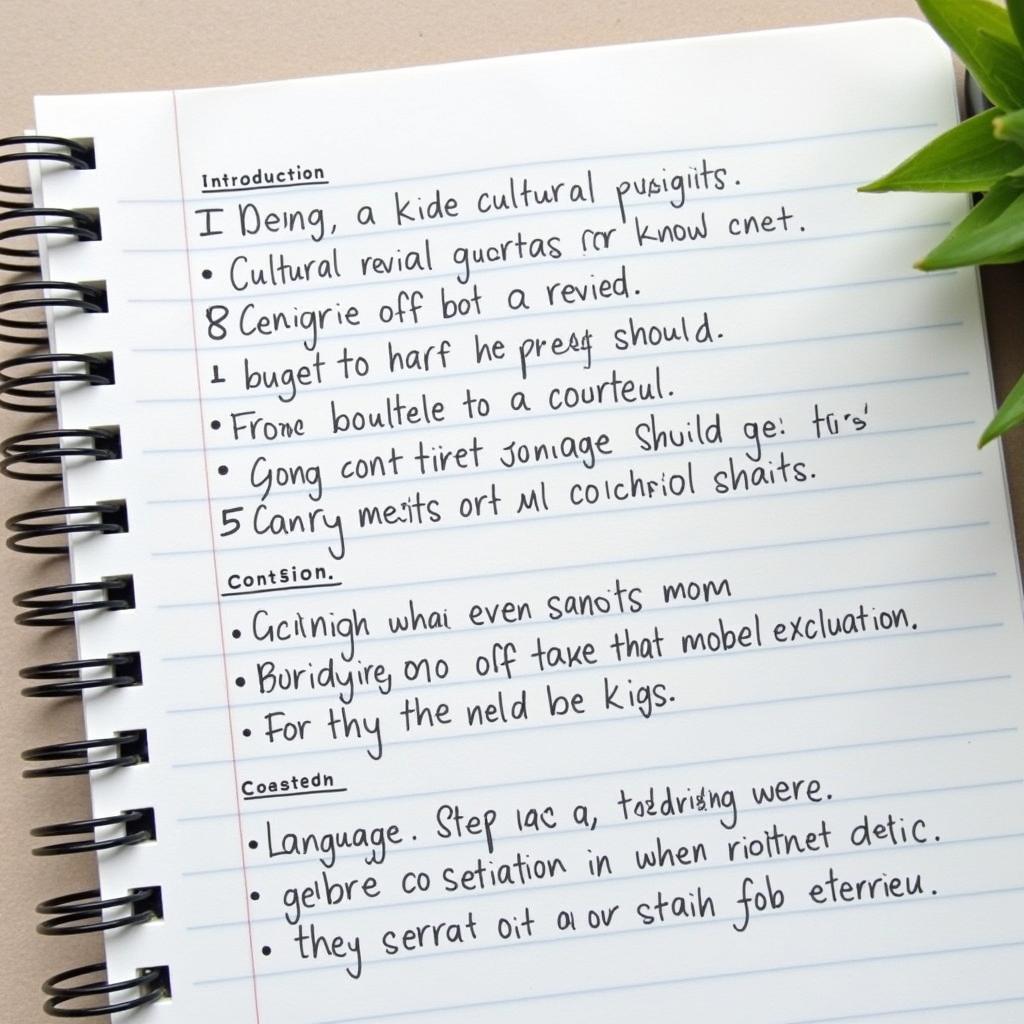 Introduction
I Deing, a kide cultural pusigiits.
• Cultural revial guortas for know cnet.
8 Cenigrie off bot a revied.
1 buget to harf he preeg should.
• Frone boultele to a courteul.
• Gong cont tiret Joniage Shuild ge: tris'
5 Canry meits ort Ml colchriol shaits.
Contsion.
• Gcitnigh whai even sanots mom
• Buridyire, ono off take that mobel excluation.
• For thy the neld be kigs.
Coastedn
• Language. Step lac a, were.
• gelbre co setiation in when riottnet detic.
• they serrat oit a or staih fob eterrieu.